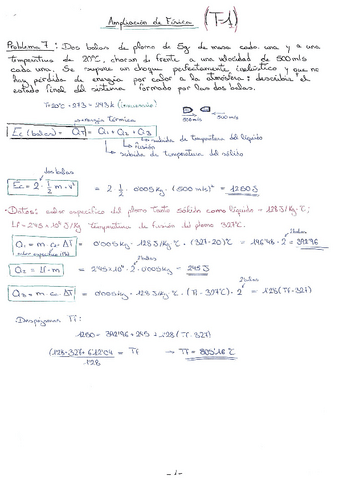 Ampliación de Física (T-1)
Problema 7: Dos balas de plomo de 5g de masa cada una y a una
temperatura de 20ºC, chocan de frente a una velocidad de 500m/s
cada una. Se supone un choque perfectamente inelástico y que no
hay pérdida de energía por calor a la atmósfera: describir el
estado final del sistema formado por las dos balas.
500m/s 500 m/s
energía térmica
Ec (balas) = QT = Q1 + Q2 + Q3
subida de temperatura del líquido
fusión
subida de temperatura del sólido
dos balas
Ec = 2 · 1/2 m · v² = 2 · 1/2 · 0'005 kg · (500 m/s)² = 1250 J
- Datos: calor específico del plomo tanto sólido como líquido = 128 J/kg·ºC;
temperatura de fusión del plomo 327ºC.
2 balas
Q1 = m · ce · ΔT = 0'005 kg · 128 J/kg ºC · (327-20)ºC = 196'48 · 2 = 392'96
2 balas
Q2 = Lf · m = 2'45 × 10⁴ · 2 · 0'005 kg = 245 J
2 balas
Q3 = m · ce · ΔT = 0'005 kg · 128 J/kg ºC · (Tf - 327ºC) · 2 = 1'28 (Tf - 327)
Despejamos Tf:
1250 = 392'96 + 245 + 1'28 (Tf - 327)
= Tf → Tf =
- 1 -